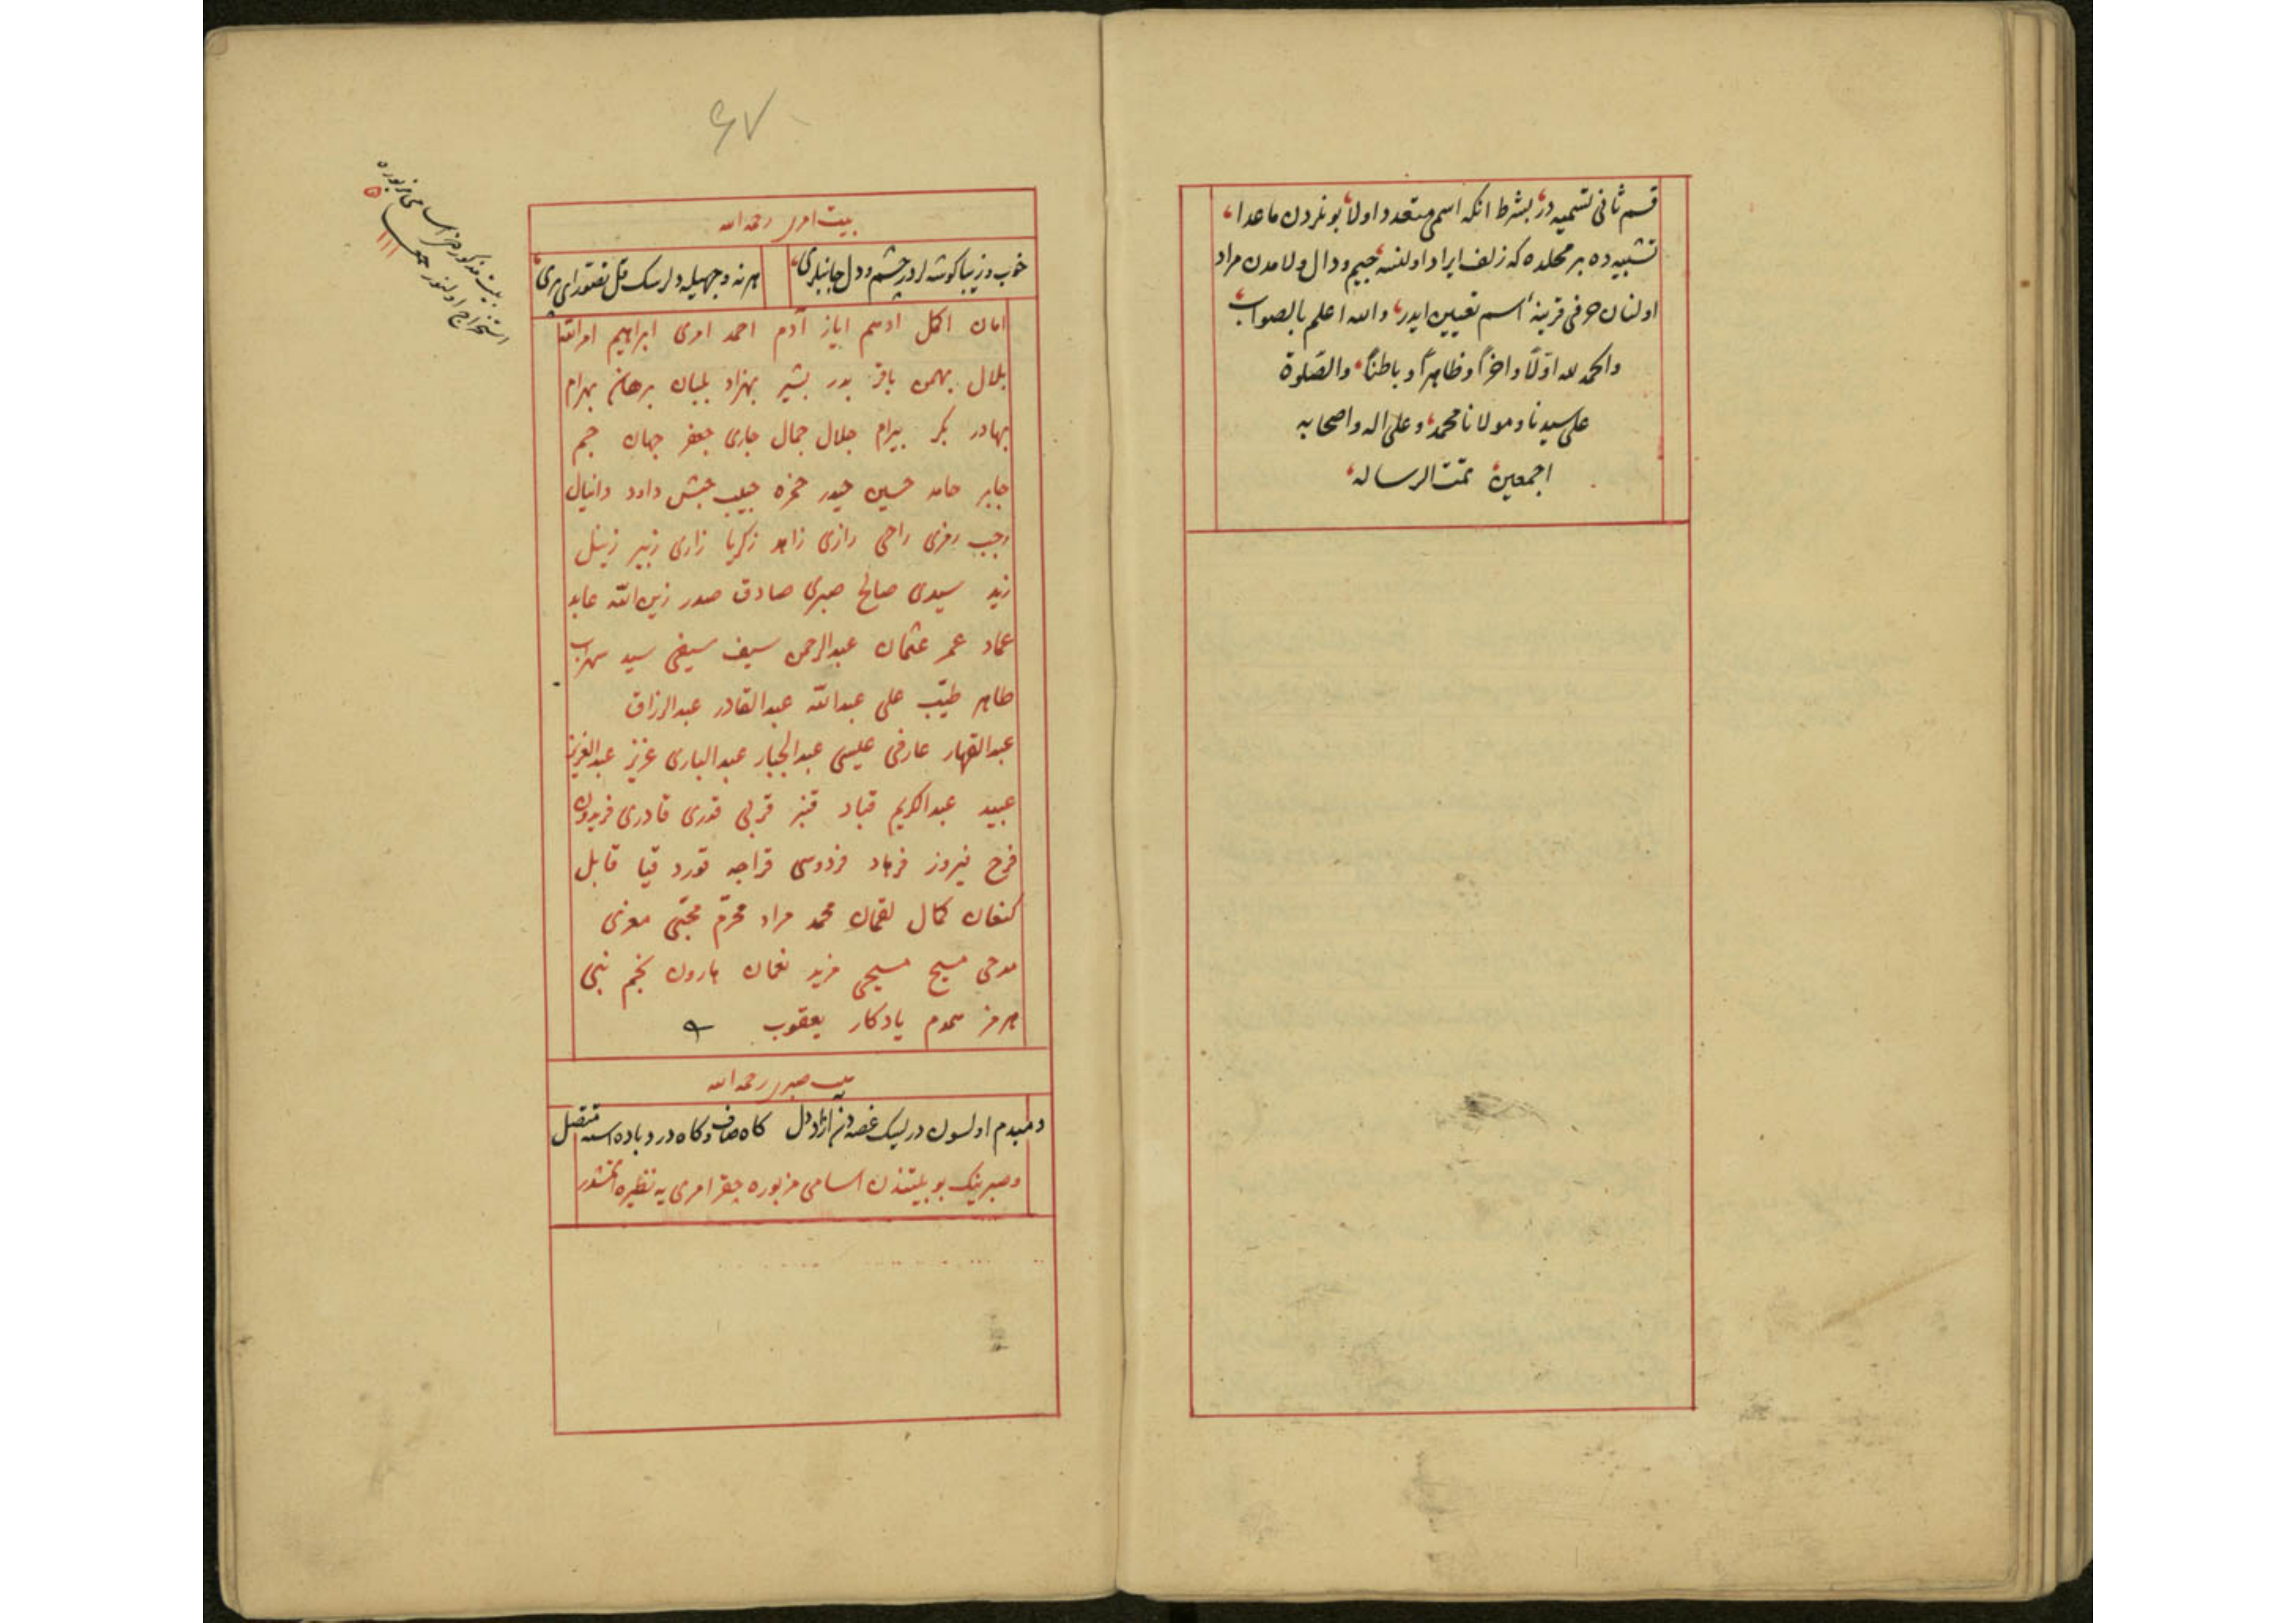 قسم ثانی تسمیه در بشرط انکه اسمی متعدد اولا بونلردن ماعدا
تشبیه ده بر محلده که زلف ایراد اولنسه جیم و دال و لامدن مراد
اولنان حرفی قرینهٔ اسم تعیین ایدر والله اعلم بالصواب
والحمد لله اوّلاً واخراً وظاهراً وباطناً والصّلوة
علی سیدنا ومولانا محمد وعلی اله واصحابه
اجمعین تمت الرساله
۶۷
بیت امری رحمه الله
خوب و زیبا کوشه لردر چشم و دل جانبلری
هر نه وجهیله دلرسک قل تفتور ای پری
امان اکمل ادهم ایاز آدم احمد امری ابراهیم امرالله
بلال بهمن باقر بدر بشیر بهزاد بلبان برهان بهرام
بهادر بکر بیرام جلال جمال جاری جعفر جهان جم
جابر حامد حسین حیدر حمزه حبیب حبش داود دانیال
رجب رمزی راحی رازی زاهد زکریا زاری زبیر زینل
زید سیدی صالح صبری صادق صدر زین الله عابد
عماد عمر عثمان عبدالرحمن سیف سیفی سید سهراب
طاهر طیّب علی عبدالله عبدالقادر عبدالرزاق
عبدالقهار عارفی عیسی عبدالجبار عبدالباری عزیز عبدالعزیز
عبید عبدالکریم قباد قنبر قربی قدری قادری فریدون
فرح فیروز فرهاد فردوسی قراجه قورد قیا قابل
کنعان کمال لقمان محمد مراد محرّم مجتبی معزی
مدحی مسیح مسیحی مزید نعمان هارون نجم نبی
هرمز همدم یادکار یعقوب
بیت صبری رحمه الله
دمبدم اولسون درلیک غصه دن ازاد دل کاه صاف و کاه درد باده اسه متصل
وصبرینک بو بیتندن اسامی مزبوره جقر امری یه نظیره ایتمشدر
بیت مذکور مز اسامی مزبوره
استخراج اولنور